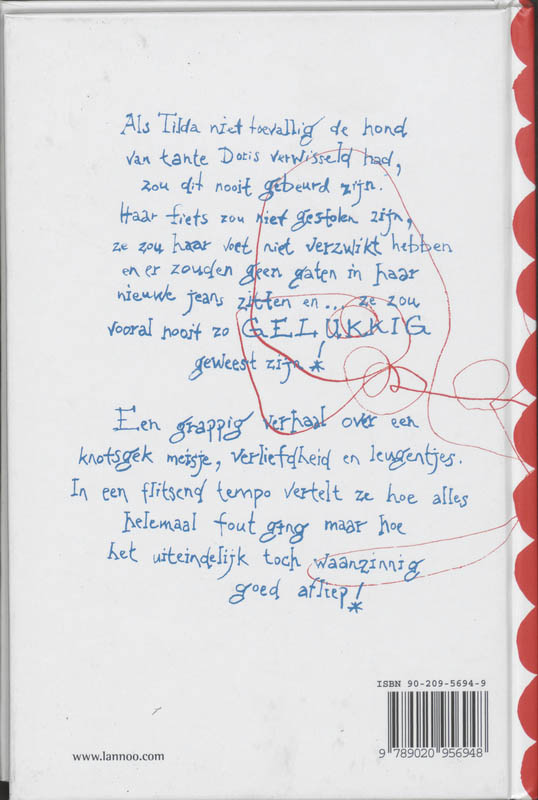 Als Tilda niet toevallig de hond
van tante Doris verwisseld had,
zou dit nooit gebeurd zijn.
Haar fiets zou niet gestolen zijn,
ze zou haar voet niet verzwikt hebben
en er zouden geen gaten in haar
nieuwe jeans zitten en ... ze zou
vooral nooit zo GELUKKIG
geweest zijn!
Een grappig verhaal over een
knotsgek meisje, verliefdheid en leugentjes.
In een flitsend tempo vertelt ze hoe alles
helemaal fout ging maar hoe
het uiteindelijk toch waanzinnig
goed afliep!
ISBN 90-209-5694-9
9 789020 956948
www.lannoo.com